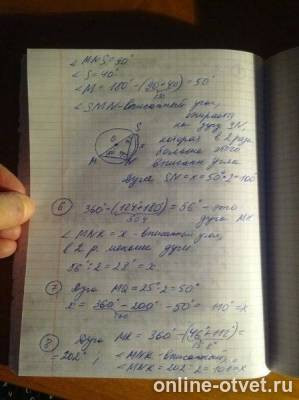 ∠MNS=90°
∠S=40°
∠M=180°-(90+40)=50°
130
∠SMN-вписанный угол,
опирается
на дугу SN,
которая в 2 раза
больше этого
вписан. угла
Дуга SN=x=50°·2=100°
S
O
M
N
⑥ 360°-(124+180)=56°-это
304
дуга MK
∠MNK=x-вписанный угол,
в 2 р. меньше дуги
56°:2=28°=x.
⑦ Дуга MQ=25°·2=50°
x=360°-200°-50°=110°=x
160
⑧ Дуга MK=360°-(46°+112°)=
158
=202°; ∠MNK-вписанный,
∠MNK=202°:2=101°=x
online-otvet.ru